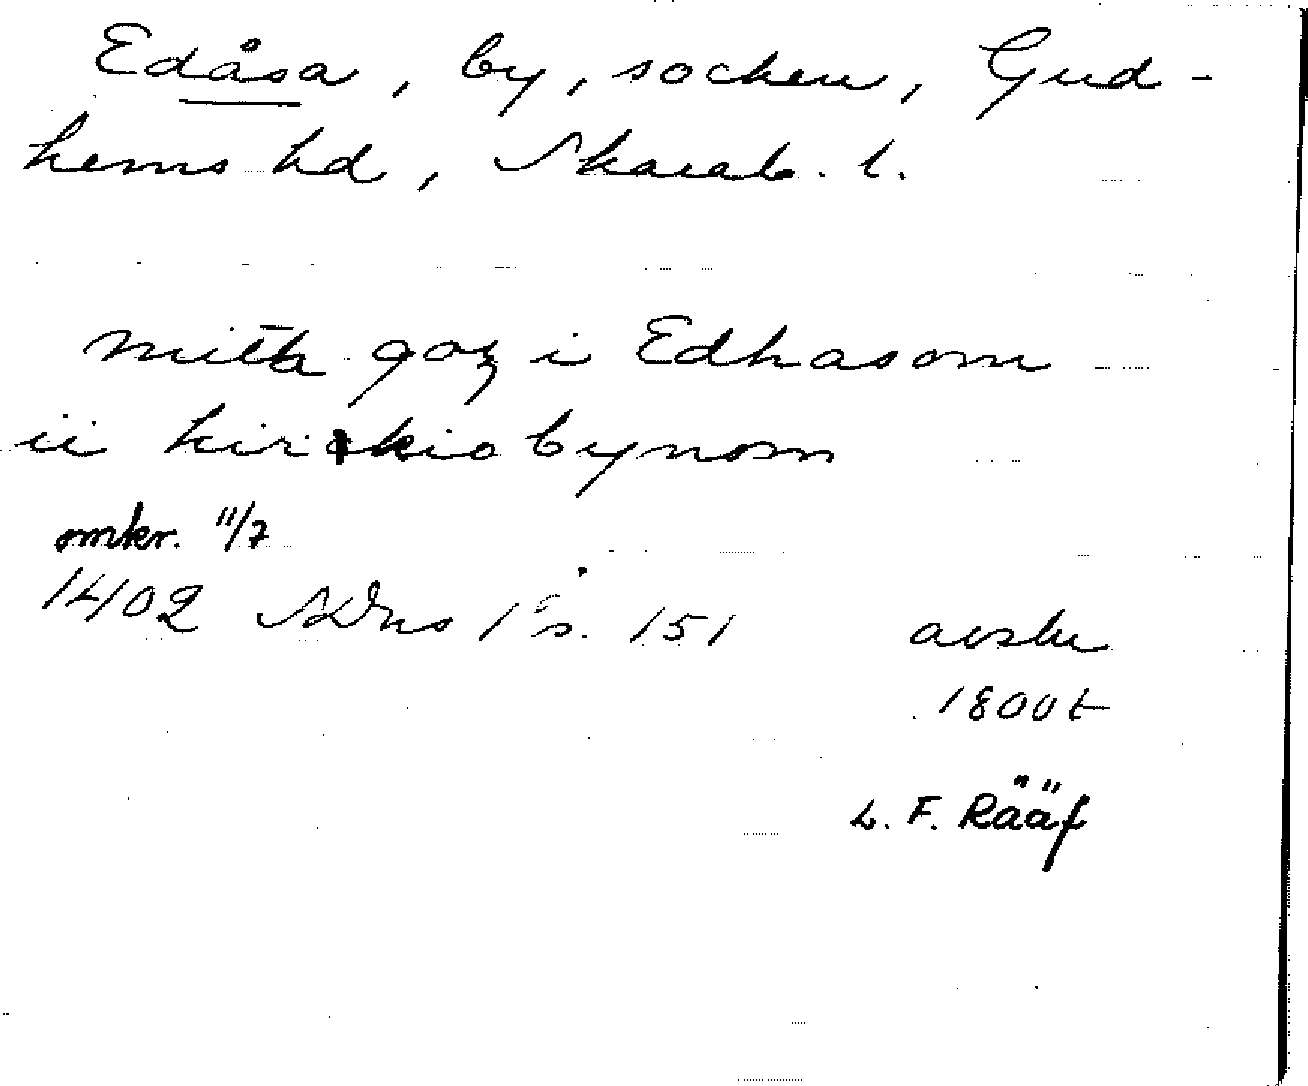 Edåsa, by, socken, Gud-
hems hd, Skarab. l.
mitth goz i Edhasom
ii kirkio bynom
omkr. 11/7
1402 SDns 1 s. 151 avskr
1800t
L. F. Rääf